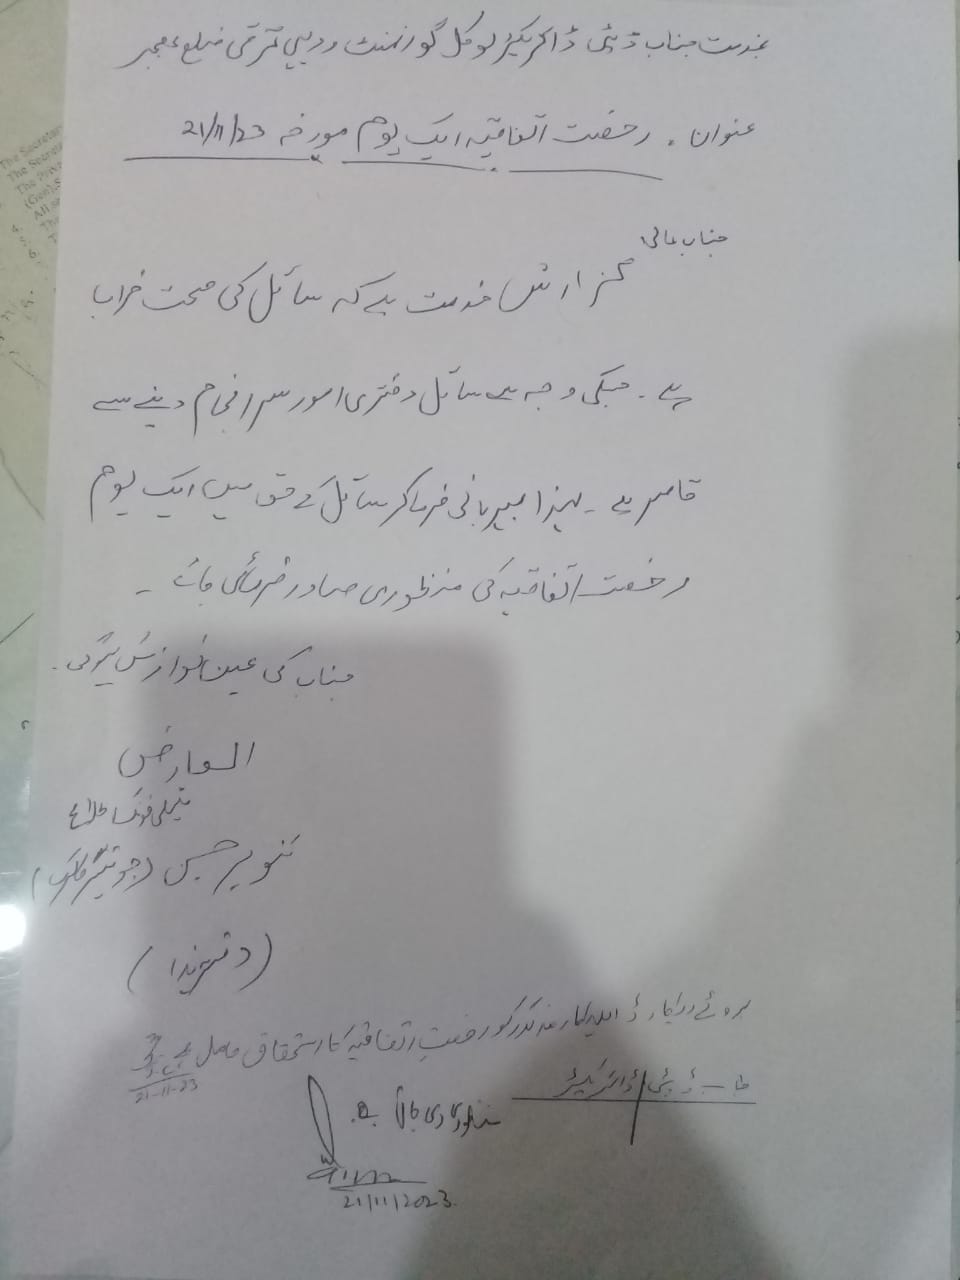 بخدمت جناب ڈپٹی ڈائریکٹر لوکل گورنمنٹ و دیہی ترقی ضلع
عنوان . رخصت اتفاقیہ ایک یوم مورخہ 21/11/23
جناب عالی
گزارش خدمت ہے کہ سائل کی صحت خراب
ہے ۔ جسکی وجہ سے سائل دفتری امور سرانجام دینے سے
قاصر ہے ۔ لہذا مہربانی فرما کر سائل کے حق میں ایک یوم
رخصت اتفاقیہ کی منظوری صادر فرمائی جائے ۔
جناب کی عین نوازش ہوگی ۔
العارض
ٹیلی فونک اطلاع
تنویر حسین (جونیئر کلرک)
(دفتر ہذا)
بروئے ریکارڈ اہلکار مذکور کو رخصت اتفاقیہ کا استحقاق حاصل ہے
21-11-23
جناب ڈپٹی ڈائریکٹر
منظوری دی جاتی ہے .
21/11/2023
The Secretar
The Secreta
The Priv
4.
5.
6.